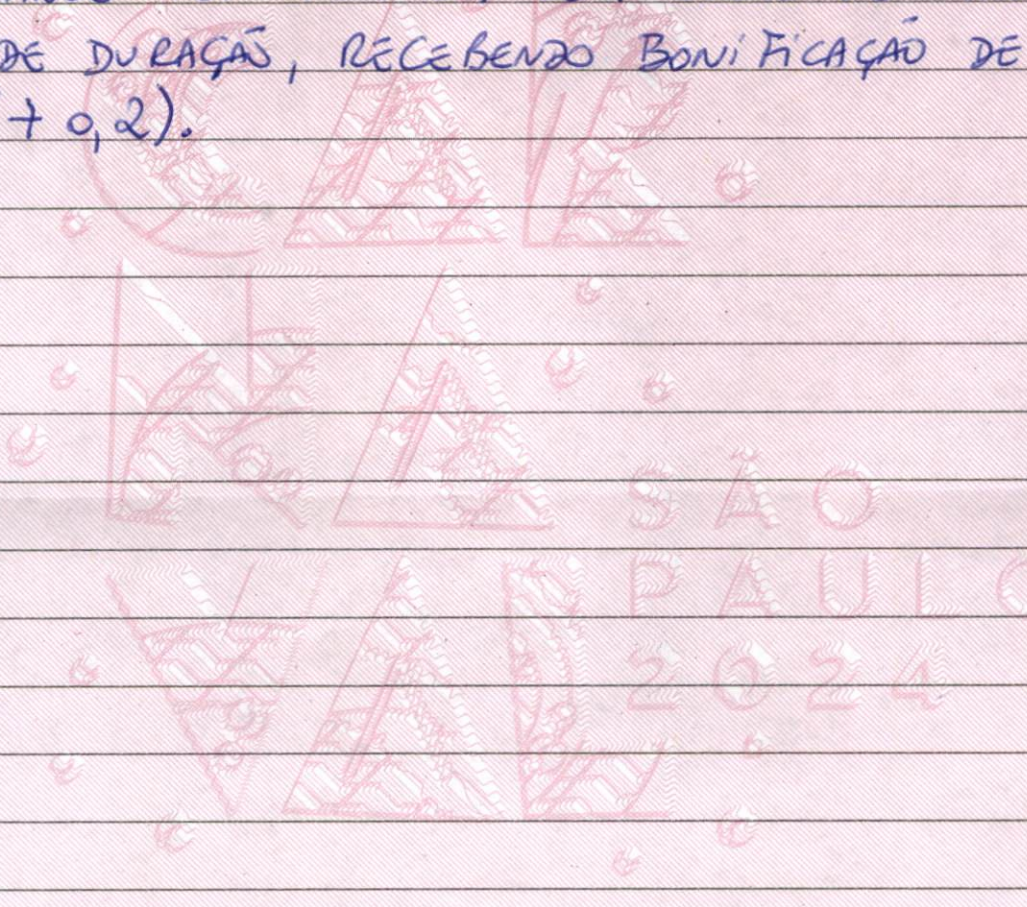 DE DURAÇÃO, RECEBENDO BONIFICAÇÃO DE
+ 0,2).
CAR
NA
SÃO
VAL
PAULO
2024